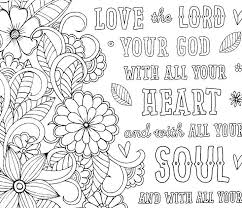 LOVE the LORD
YOUR GOD
WITH ALL YOUR
HEART
and with ALL YOUR
SOUL
AND WITH ALL YOUR